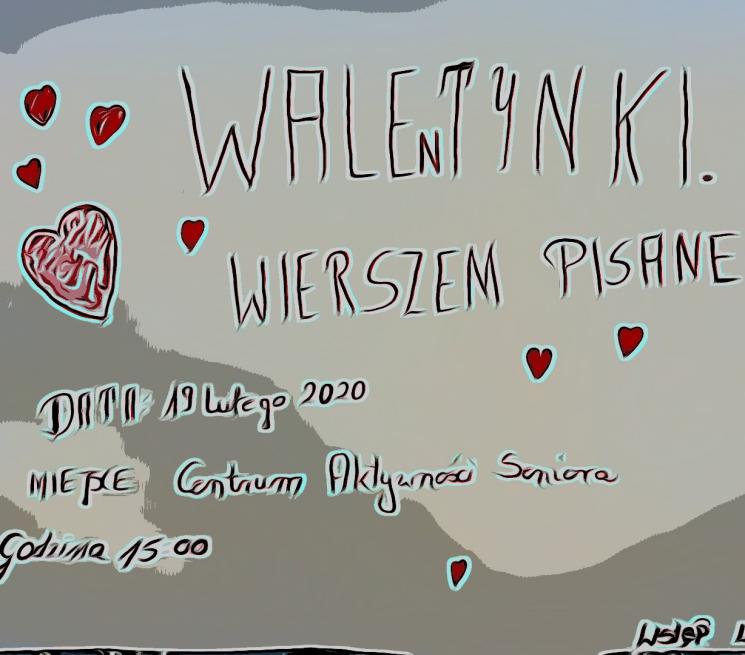 WALENTYNKI.
WIERSZEM PISANE
DATA: 19 Lutego 2020
MIEJSCE Centrum Aktywności Seniora
Godzina 15:00
Wstęp